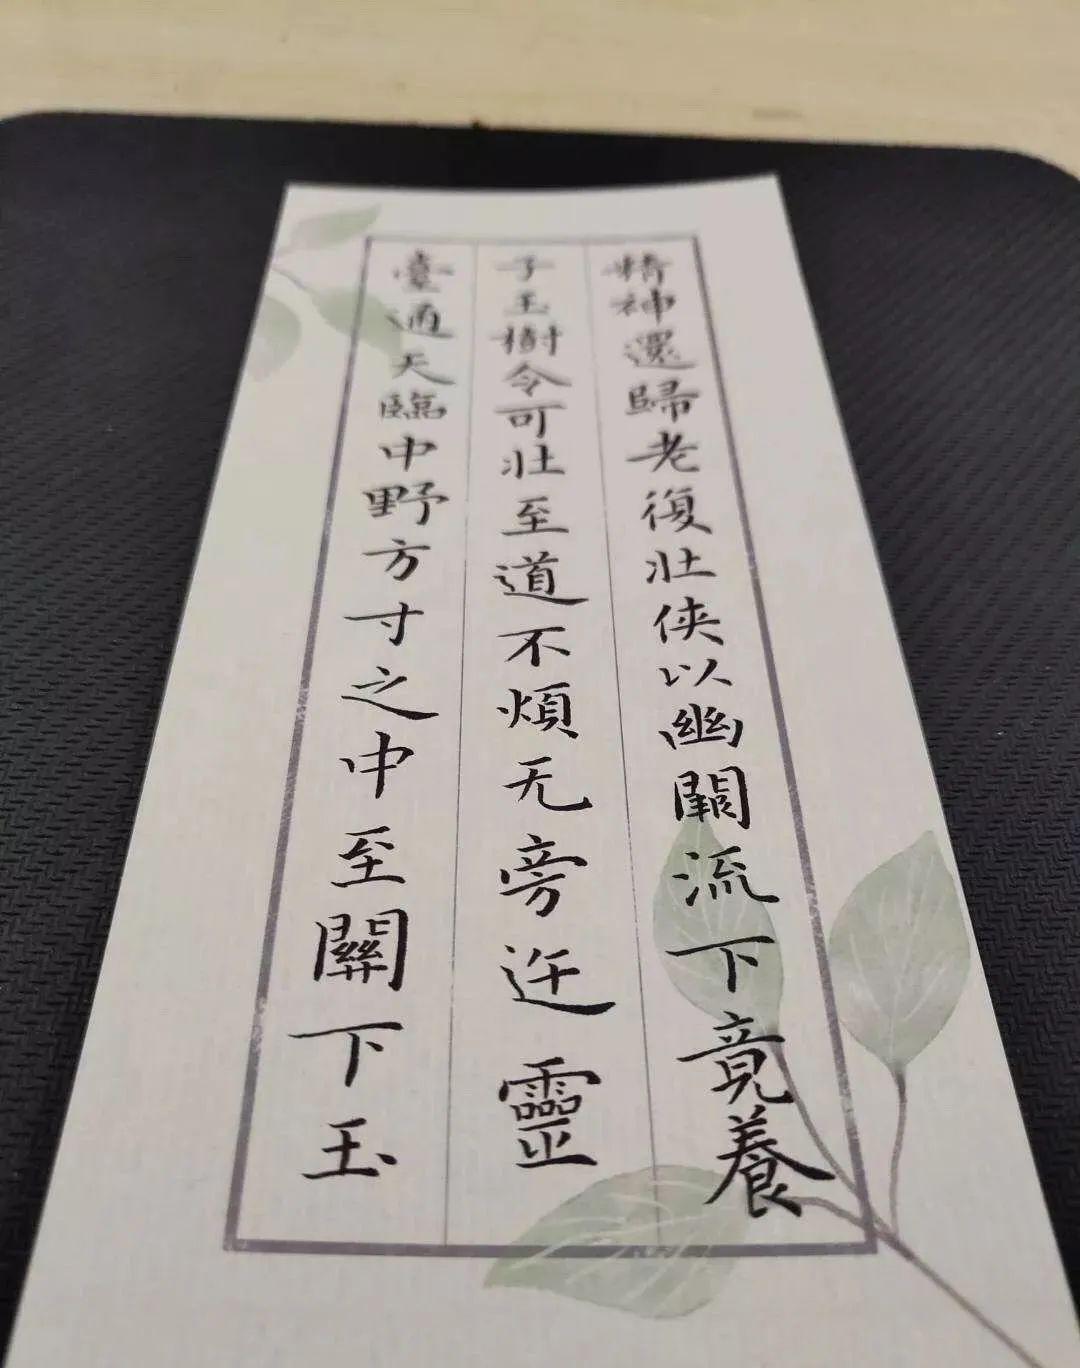 精神還歸老復壯侠以幽闕流下竟養
子玉樹令可壯至道不煩无旁迕靈
臺通天臨中野方寸之中至關下玉